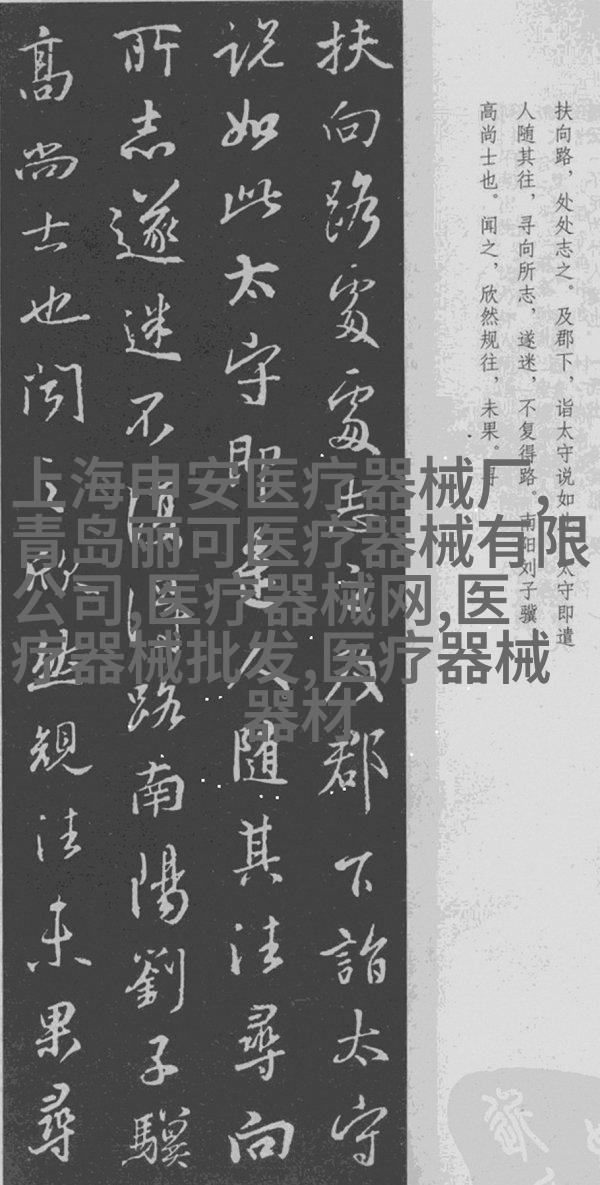 扶向路，处处志之。及郡下，诣太守说如此太守即遣
人随其往，寻向所志，遂迷，不复得路。南阳刘子骥
高尚士也。闻之，欣然规往，未果。寻
扶向路處處志之及郡下詣太守
説如此太守即遣人随其往尋向
所志遂迷不復得路南陽劉子驥
高尚士也聞之欣然規往未果尋
上海申安医疗器械厂,
青岛丽可医疗器械有限
公司,医疗器械网,医
疗器械批发,医疗器械
器材